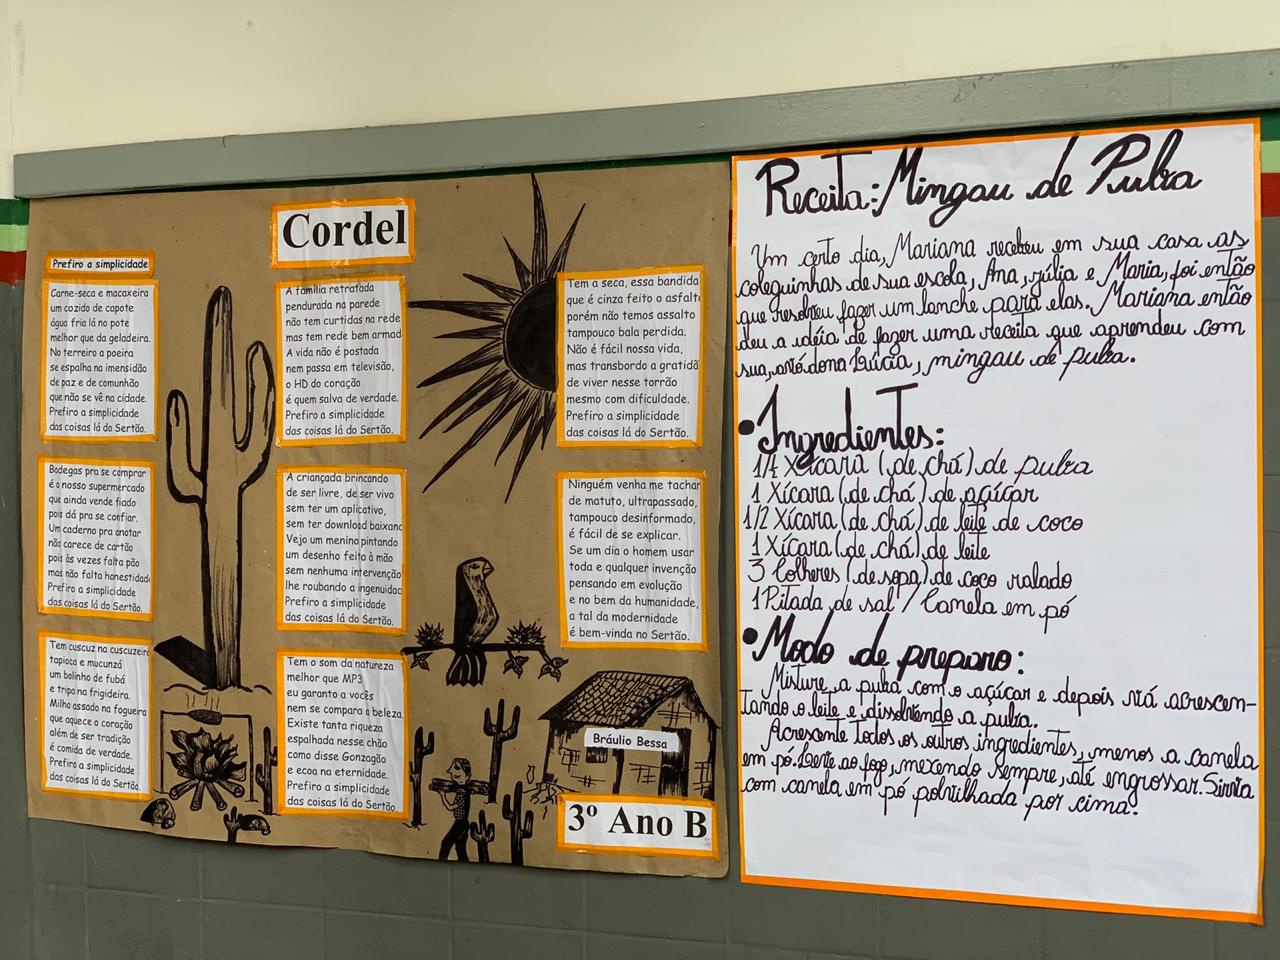 Cordel
Prefiro a simplicidade
Carne-seca e macaxeira
um cozido de capote
água fria lá no pote
melhor que da geladeira.
No terreiro a poeira
se espalha na imensidão
de paz e de comunhão
que não se vê na cidade.
Prefiro a simplicidade
das coisas lá do Sertão.
Bodegas pra se comprar
é o nosso supermercado
que ainda vende fiado
pois dá pra se confiar.
Um caderno pra anotar
não carece de cartão
pois às vezes falta pão
mas não falta honestidad
Prefiro a simplicidade
das coisas lá do Sertão.
Tem cuscuz na cuscuzeir
tapioca e mucunzá
um bolinho de fubá
e tripa na frigideira.
Milho assado na fogueira
que aquece o coração
além de ser tradição
é comida de verdade.
Prefiro a simplicidade
das coisas lá do Sertão.
A família retratada
pendurada na parede
não tem curtidas na rede
mas tem rede bem armad
A vida não é postada
nem passa em televisão,
o HD do coração
é quem salva de verdade.
Prefiro a simplicidade
das coisas lá do Sertão.
A criançada brincando
de ser livre, de ser vivo
sem ter um aplicativo,
sem ter download baixand
Vejo um menino pintando
um desenho feito à mão
sem nenhuma intervenção
lhe roubando a ingenuidad
Prefiro a simplicidade
das coisas lá do Sertão.
Tem o som da natureza
melhor que MP3
eu garanto a vocês
nem se compara a beleza.
Existe tanta riqueza
espalhada nesse chão
como disse Gonzagão
e ecoa na eternidade.
Prefiro a simplicidade
das coisas lá do Sertão.
Tem a seca, essa bandida
que é cinza feito o asfalt
porém não temos assalto
tampouco bala perdida.
Não é fácil nossa vida,
mas transbordo a gratidã
de viver nesse torrão
mesmo com dificuldade.
Prefiro a simplicidade
das coisas lá do Sertão.
Ninguém venha me tachar
de matuto, ultrapassado,
tampouco desinformado,
é fácil de se explicar.
Se um dia o homem usar
toda e qualquer invenção
pensando em evolução
e no bem da humanidade,
a tal da modernidade
é bem-vinda no Sertão.
Bráulio Bessa
3º Ano B
Receita: Mingau de Puba
Um certo dia, Mariana recebeu em sua casa as
coleguinhas de sua escola, Ana, Júlia e Maria, foi então
que resolveu fazer um lanche para elas. Mariana então
deu a idéia de fazer uma receita que aprendeu com
sua, avó dona Lúcia, mingau de puba.
• Ingredientes:
1/4 Xícara (de chá) de puba
1 Xícara (de chá) de açúcar
1/2 Xícara (de chá) de leite de coco
1 Xícara (de chá) de leite
3 Colheres (de sopa) de coco ralado
1 Pitada de sal / Canela em pó
• Modo de preparo:
Misture a puba com o açúcar e depois vá acrescen-
tando o leite e dissolvendo a puba.
Acrescente todos os outros ingredientes, menos a canela
em pó. Leve ao fogo, mexendo sempre, até engrossar. Sirva
com canela em pó polvilhada por cima.